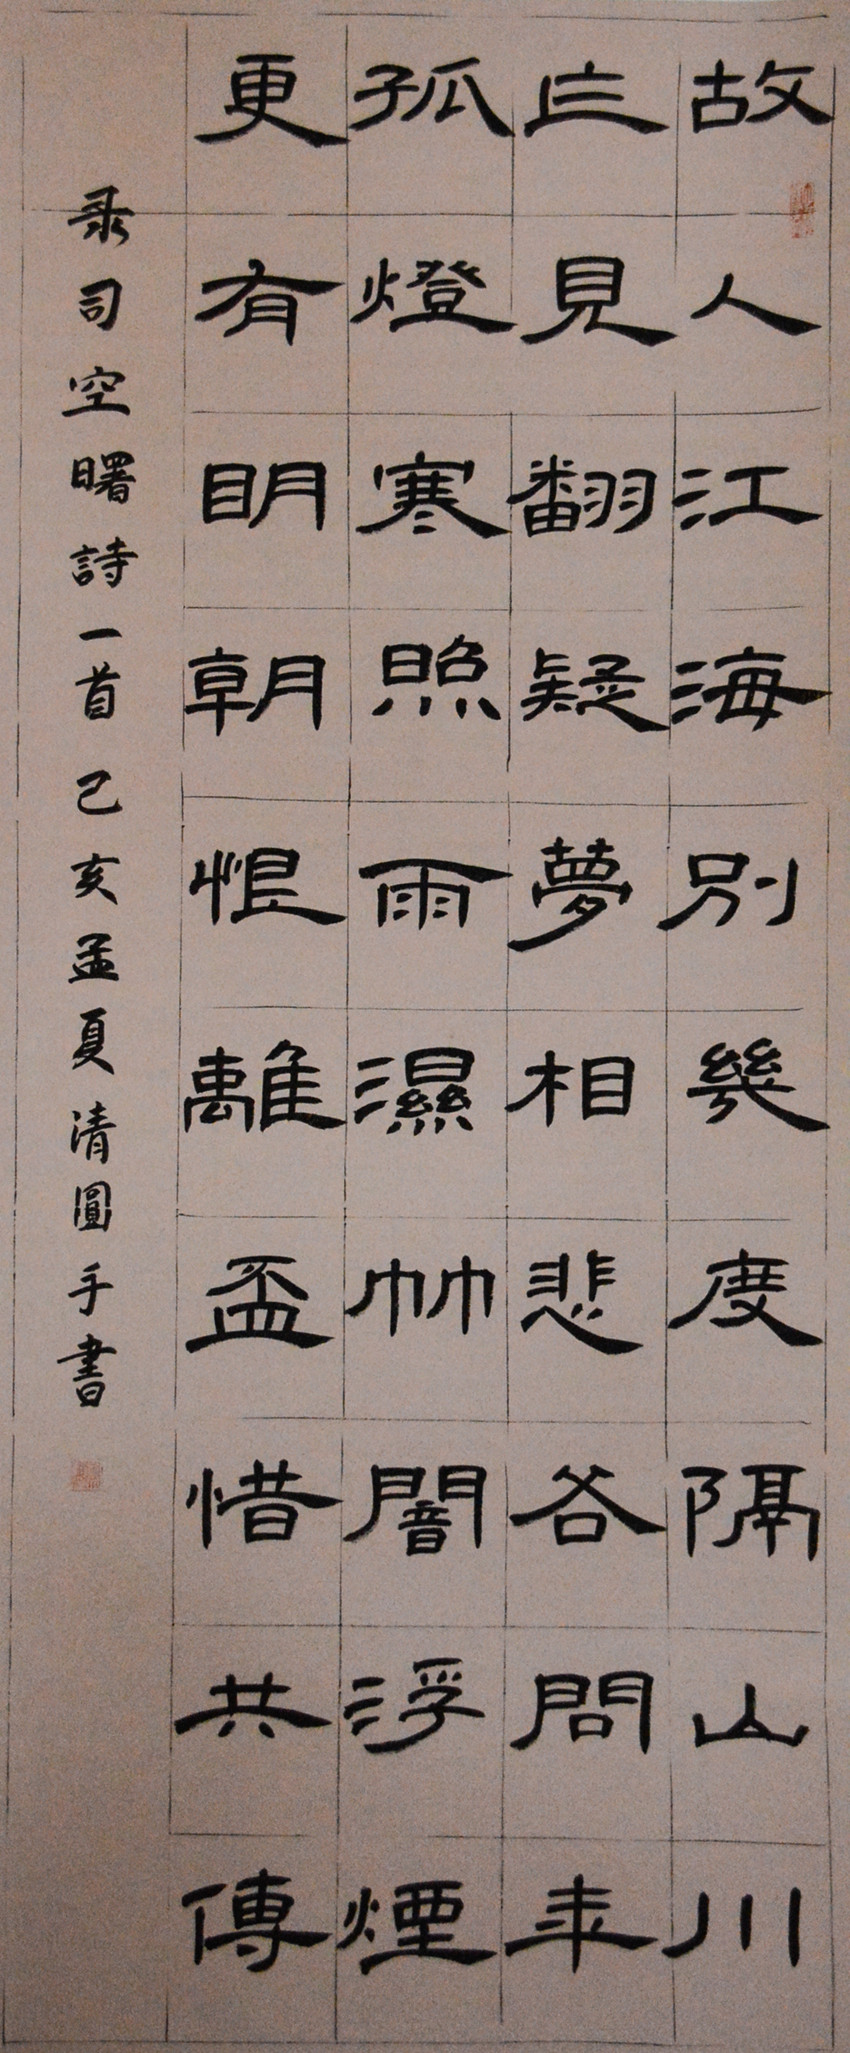 故人江海別幾度隔山川
乍見翻疑夢相悲各問年
孤燈寒照雨濕竹闇浮煙
更有明朝恨離盃惜共傳
录司空曙詩一首己亥孟夏清圓手書